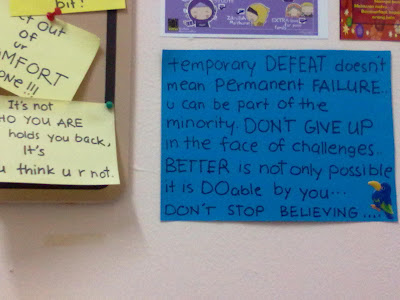 bit!
ct out
of
ur
COMFORT
one!!!
It's not
HO YOU ARE
holds you back,
It's
u think u r not.
temporary DEFEAT doesn't
mean permanent FAILURE..
u can be part of the
minority. DON'T GIVE UP
in the face of challenges..
BETTER is not only possible
it is DOable by you...
DON'T STOP BELIEVING....